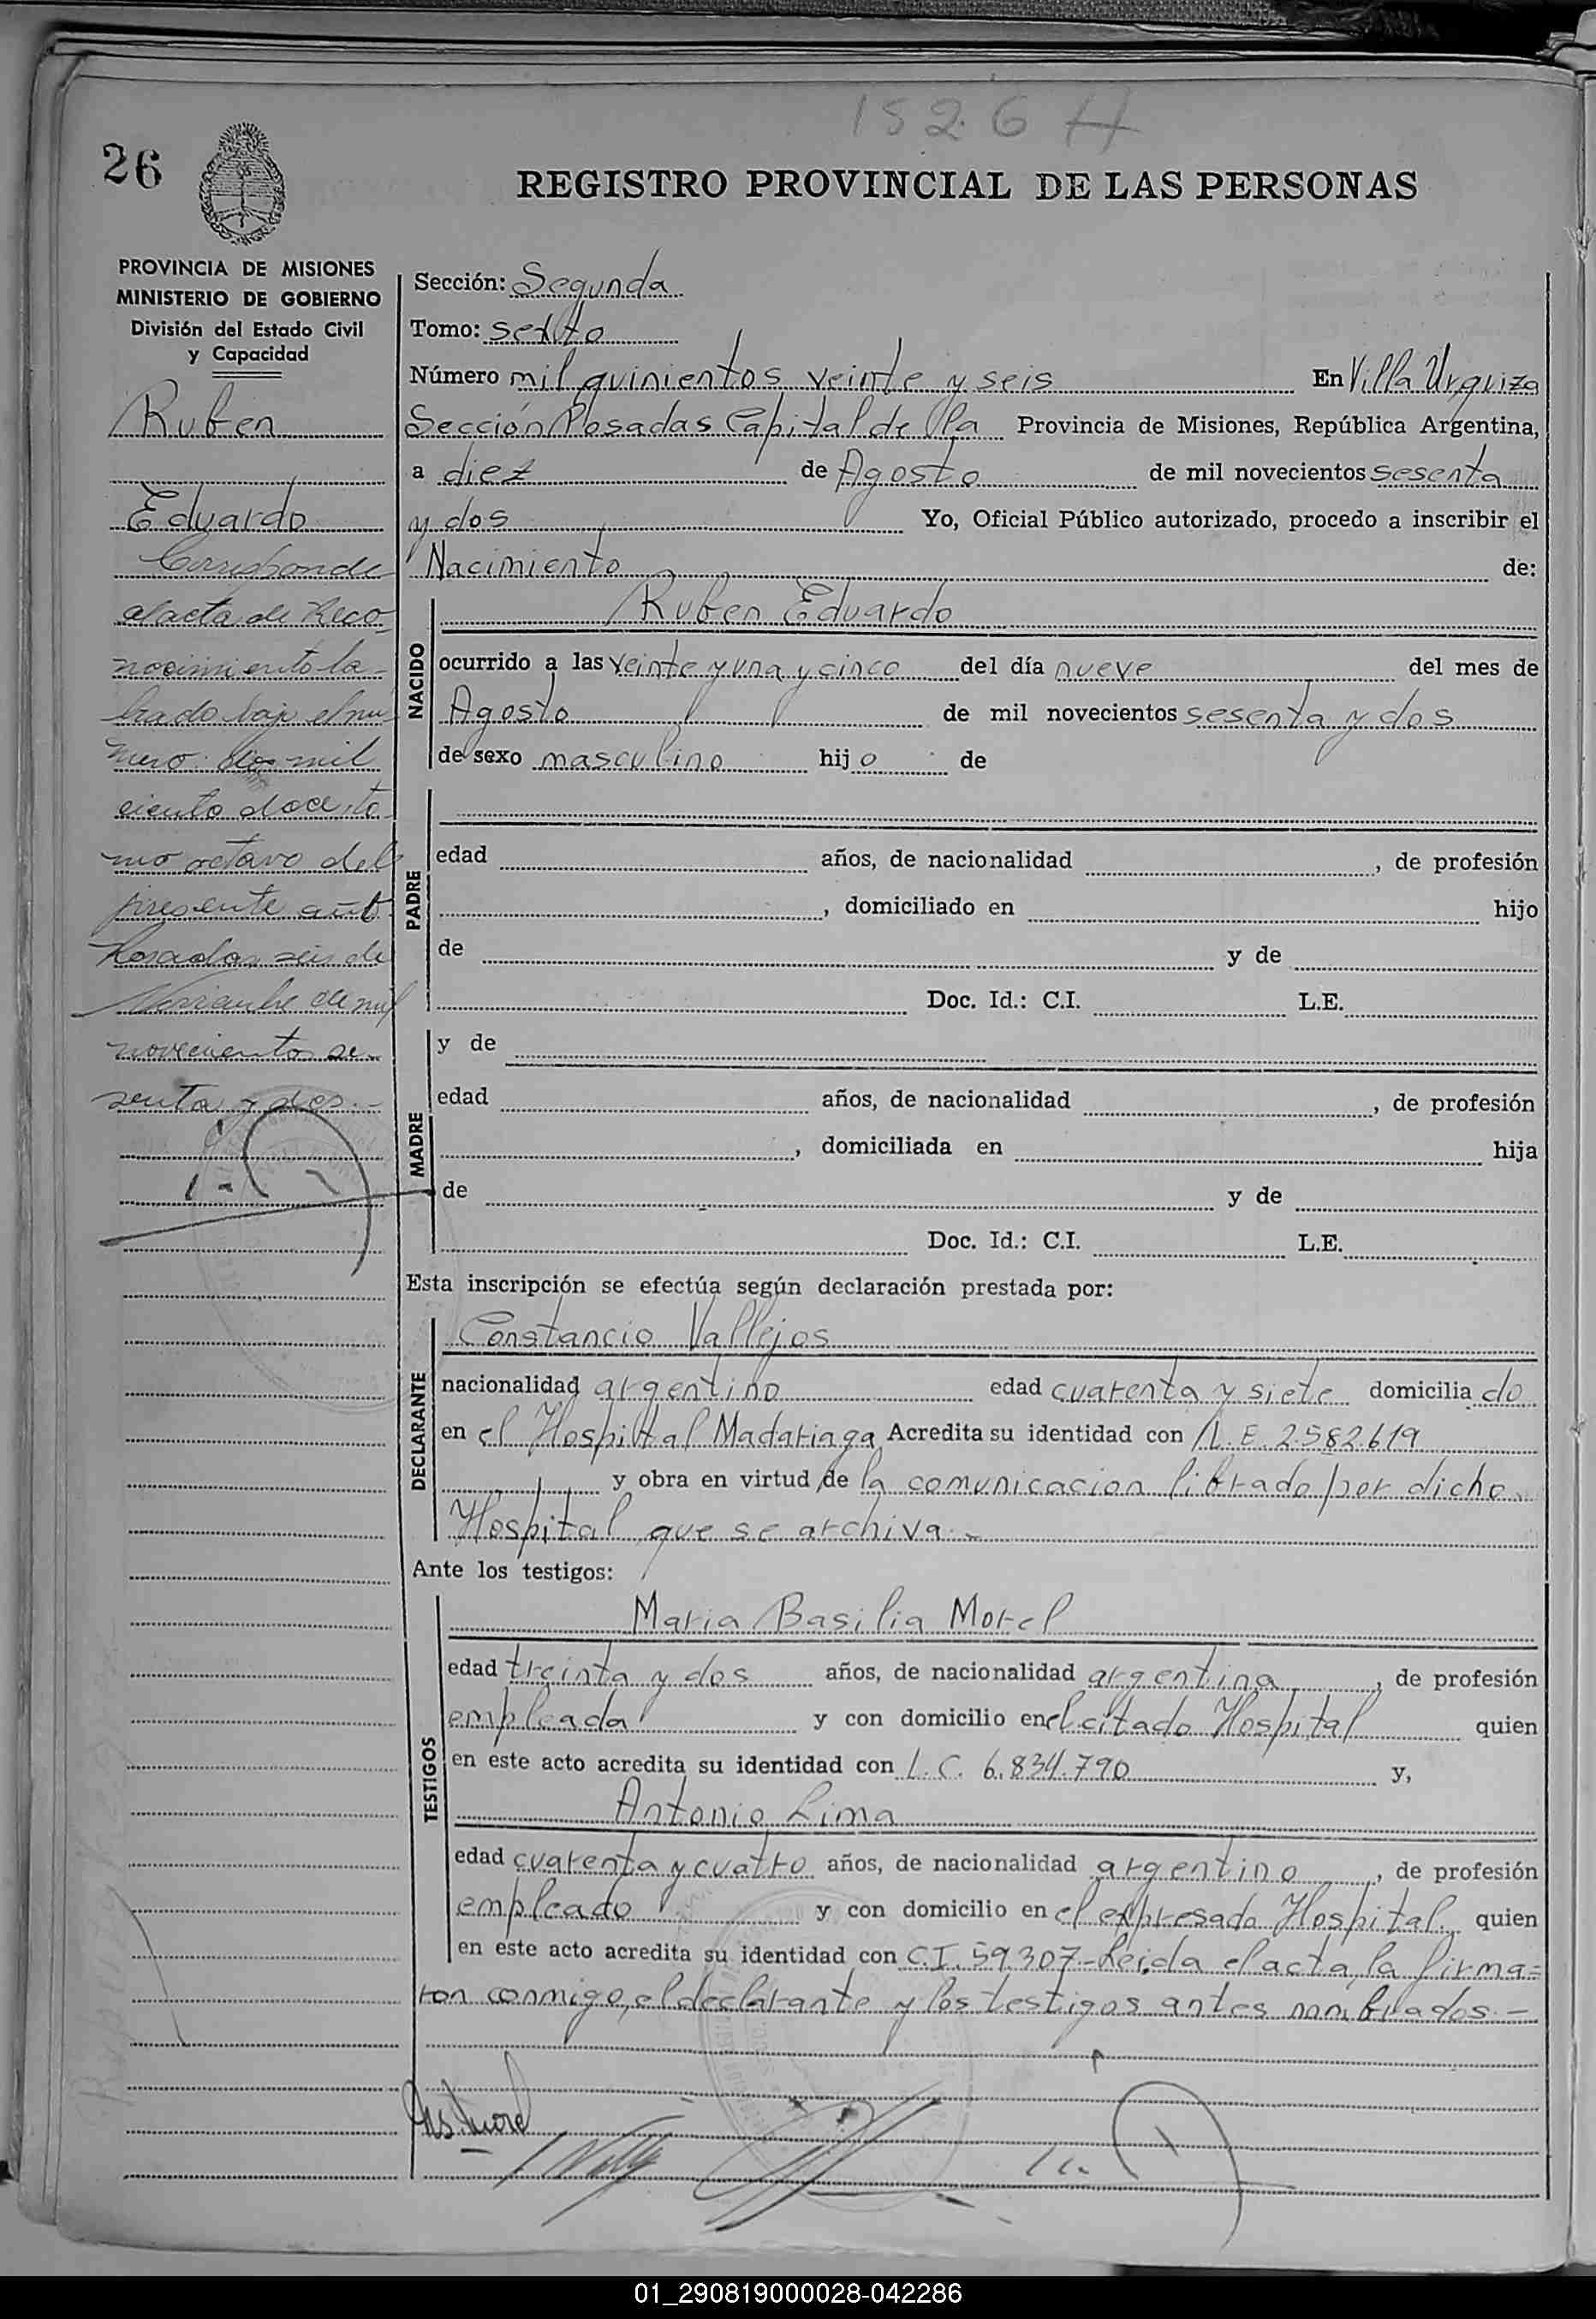 1526 H
26
REGISTRO PROVINCIAL DE LAS PERSONAS
PROVINCIA DE MISIONES
MINISTERIO DE GOBIERNO
División del Estado Civil
y Capacidad
Ruben
Eduardo
Corresponde
al acta de Reco-
nocimiento la-
brado bajo el nú-
mero: dos mil
ciento doce, to-
mo octavo del
presente año.
Posadas, seis de
Noviembre de mil
novecientos se-
senta y dos.-
Sección: Segunda
Tomo: sexto
Número mil quinientos veinte y seis En Villa Urquiza
Sección Posadas Capital de la Provincia de Misiones, República Argentina,
a diez de Agosto de mil novecientos sesenta
y dos Yo, Oficial Público autorizado, procedo a inscribir el
Nacimiento de:
NACIDO
Ruben Eduardo
ocurrido a las veinte y una y cinco del día nueve del mes de
Agosto de mil novecientos sesenta y dos
de sexo masculino hijo de
PADRE
edad años, de nacionalidad , de profesión
, domiciliado en hijo
de y de
Doc. Id.: C.I. L.E.
MADRE
y de
edad años, de nacionalidad , de profesión
, domiciliada en hija
de y de
Doc. Id.: C.I. L.E.
Esta inscripción se efectúa según declaración prestada por:
DECLARANTE
Constancio Vallejos
nacionalidad argentino edad cuarenta y siete domiciliado
en el Hospital Madariaga Acredita su identidad con L.E. 2.582.619
y obra en virtud de la comunicacion librado por dicho
Hospital que se archiva.-
Ante los testigos:
TESTIGOS
Maria Basilia Morel
edad treinta y dos años, de nacionalidad argentina, de profesión
empleada y con domicilio en el citado Hospital quien
en este acto acredita su identidad con L.C. 6.834.790 y,
Antonio Lima
edad cuarenta y cuatro años, de nacionalidad argentino, de profesión
empleado y con domicilio en el expresado Hospital quien
en este acto acredita su identidad con C.I. 59.307-Leida el acta, la firma=
ron conmigo, el declarante y los testigos antes nombrados.-
01_290819000028-042286